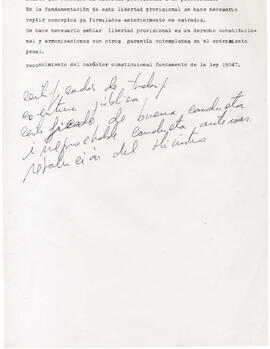 En la fundamentación de esta libertad provisional se hace necesario
repetir conceptos ya formulados anteriormente en estrados.
Se hace necesario señlar libertad provisional es un derecho constitucio-
nal y armonizaciones con otros garantía cotempladas en el ordenamiento
penal.
reconocimiento del carácter constitucional fundamento de la ley 19047.
certificados de trabajo
escritura pública
certificado de buena conducta
irreprochable conducta anterior.
revaluación del Ministro